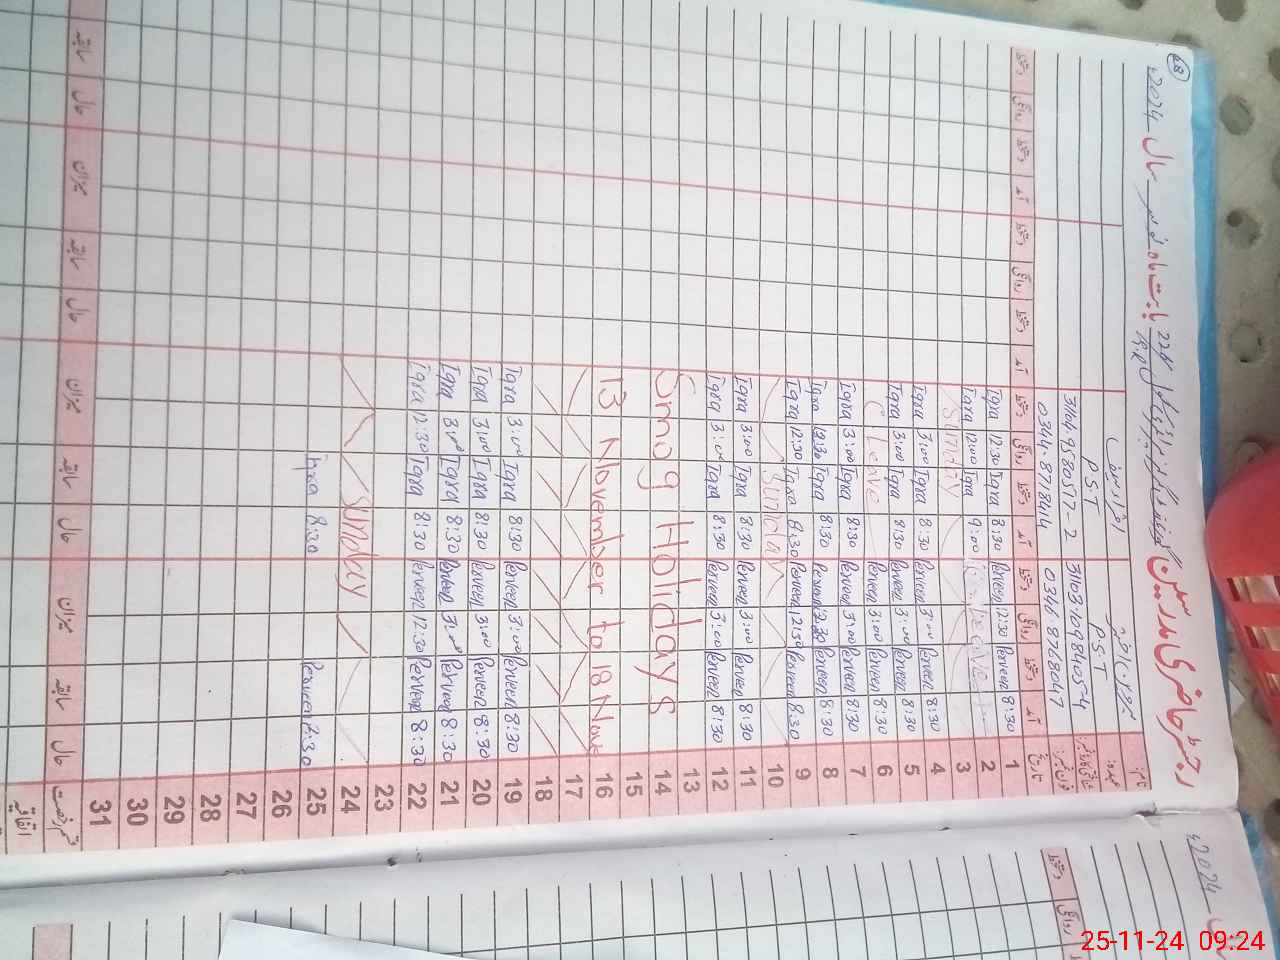 68
رجسٹر حاضری مدرسین
بابت ماہ نومبر سال 2024ء
نام
عہدہ
PST
PST
31103-1098405-4
31104-9580577-2
0346-8768047
0344-8778144
تاریخ آمد دستخط روانگی دستخط آمد دستخط روانگی دستخط آمد دستخط روانگی دستخط آمد دستخط روانگی دستخط
1 8:30 Perveen 12:30 Perveen 8:30 Iqra 12:30 Iqra
2 Leave 9:00 Iqra 12:00 Iqra
3 Sunday
4 8:30 Perveen 3:00 Perveen 8:30 Iqra 3:00 Iqra
5 8:30 Perveen 3:00 Perveen 8:30 Iqra 3:00 Iqra
6 8:30 Perveen 3:00 Perveen C. Leave
7 8:30 Perveen 3:00 Perveen 8:30 Iqra 3:00 Iqra
8 8:30 Perveen 12:30 Perveen 8:30 Iqra 12:30 Iqra
9 8:30 Perveen 12:30 Perveen 8:30 Iqra 12:30 Iqra
10 Sunday
11 8:30 Perveen 3:00 Perveen 8:30 Iqra 3:00 Iqra
12 8:30 Perveen 3:00 Perveen 8:30 Iqra 3:00 Iqra
13
14 Smog Holidays
15
16 13 November to 18 Nov
17
18
19 8:30 Perveen 3:00 Perveen 8:30 Iqra 3:00 Iqra
20 8:30 Perveen 3:00 Perveen 8:30 Iqra 3:00 Iqra
21 8:30 Perveen 3:00 Perveen 8:30 Iqra 3:00 Iqra
22 8:30 Perveen 12:30 Perveen 8:30 Iqra 12:30 Iqra
23
24 Sunday
25 8:30 Perveen 8:30 Iqra
26
27
28
29
30
31
قسم رخصت حال سابقہ میزان حال سابقہ میزان حال سابقہ میزان حال سابقہ
اتفاقیہ
2024ء
روانگی دستخط
25-11-24 09:24